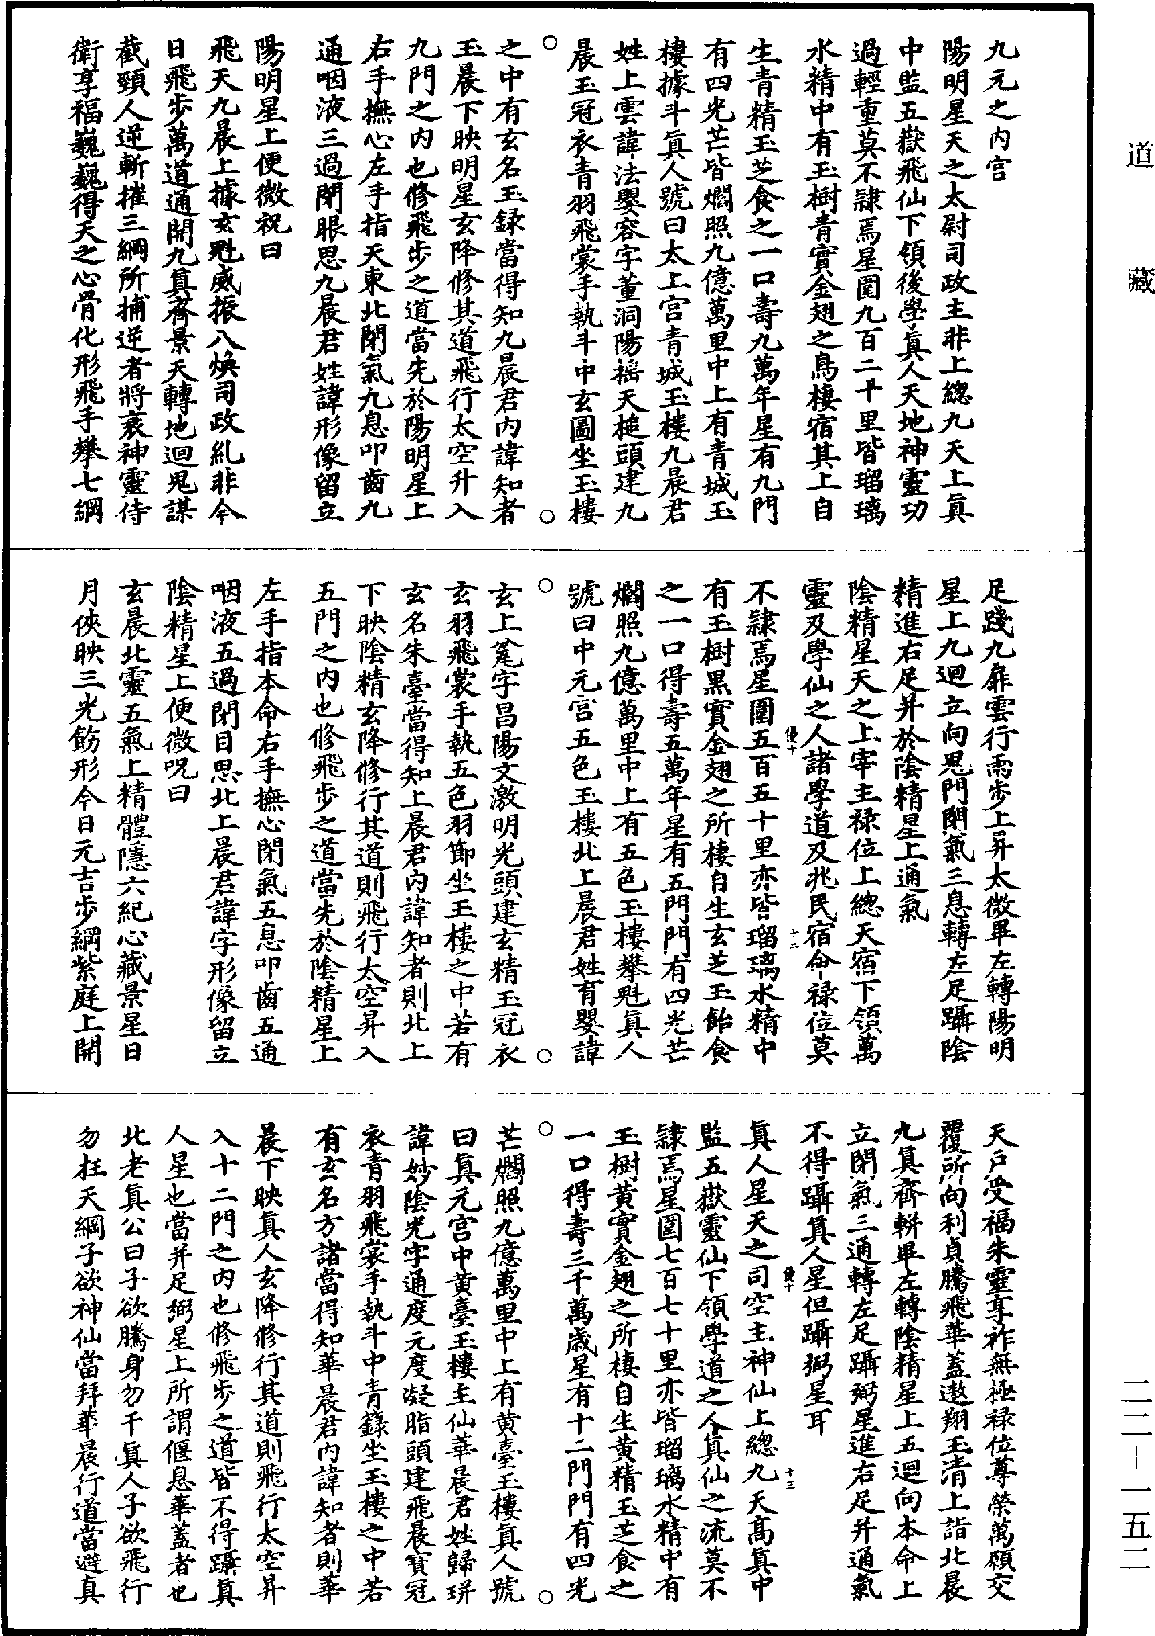 道藏
二二－一五二
九元之内宫
陽明星天之太尉司政主非上總九天上真
中監五嶽飛仙下領後學真人天地神靈功
過輕重莫不隷焉星圍九百二十里皆瑠璃
水精中有玉樹青實金翅之鳥棲宿其上自
生青精玉芝食之一口壽九萬年星有九門
有四光芒皆爓照九億萬里中上有青城玉
樓據斗真人號曰太上宫青城玉樓九晨君
姓上雲諱法嬰容字董洞陽褞天槌頭建九
晨玉冠衣青羽飛裳手執斗中玄圖坐玉樓
之中有玄名玉録當得知九晨君内諱知者
玉晨下映明星玄降修其道飛行太空升入
九門之内也修飛步之道當先於陽明星上
右手撫心左手指天東北閉氣九息叩齒九
通咽液三過閉眼思九晨君姓諱形像留立
陽明星上便微祝曰
飛天九晨上據玄魁威振八煥司政糺非今
日飛步萬道通開九真齊景天轉地迴鬼謀
截頸人逆斬摧三綱所捕逆者將衰神靈侍
衛享福巍巍得天之心骨化形飛手攀七綱
足踐九扉雲行雨步上昇太微畢左轉陽明
星上九迴立向鬼門閉氣三息轉左足躡陰
精進右足并於陰精星上通氣
陰精星天之上宰主禄位上總天宿下領萬
靈及學仙之人諸學道及兆民宿命禄位莫
不隷焉星圍五百五十里亦皆瑠璃水精中
有玉樹黑實金翅之所棲自生玄芝玉飴食
之一口得壽五萬年星有五門門有四光芒
爓照九億萬里中上有五色玉樓攀魁真人
號曰中元宫五色玉樓北上晨君姓育嬰諱
玄上㝹字昌陽文激明光頭建玄精玉冠衣
玄羽飛裳手執五色羽節坐玉樓之中若有
玄名朱臺當得知上晨君内諱知者則北上
下映陰精玄降修行其道則飛行太空昇入
五門之内也修飛步之道當先於陰精星上
左手指本命右手撫心閉氣五息叩齒五通
咽液五過閉目思北上晨君諱字形像留立
陰精星上便微呪曰
玄晨北靈五氣上精體隱六紀心藏景星日
月俠映三光飭形今日元吉步綱紫庭上開
天户受福朱靈享祚無極禄位尊榮萬願交
覆所向利貞騰飛華蓋遨翔玉清上詣北晨
九真齊軿畢左轉陰精星上五迴向本命上
立閉氣三通轉左足躡弼星進右足并通氣
不得躡真人星但躡弼星耳
真人星天之司空主神仙上總九天高真中
監五嶽靈仙下領學道之人真仙之流莫不
隷焉星圍七百七十里亦皆瑠璃水精中有
玉樹黄實金翅之所棲自生黄精玉芝食之
一口得壽三千萬歲星有十二門門有四光
芒爓照九億萬里中上有黄臺玉樓真人號
曰真元宫中黄臺玉樓主仙華晨君姓歸珫
諱妙陰光字通度元度凝脂頭建飛晨寳冠
衣青羽飛裳手執斗中青籙坐玉樓之中若
有玄名方諸當得知華晨君内諱知者則華
晨下映真人玄降修行其道則飛行太空昇
入十二門之内也修飛步之道皆不得躡真
人星也當并足弼星上所謂偃息華蓋者也
北老真公曰子欲騰身勿干真人子欲飛行
勿枉天綱子欲神仙當拜華晨行道當避真